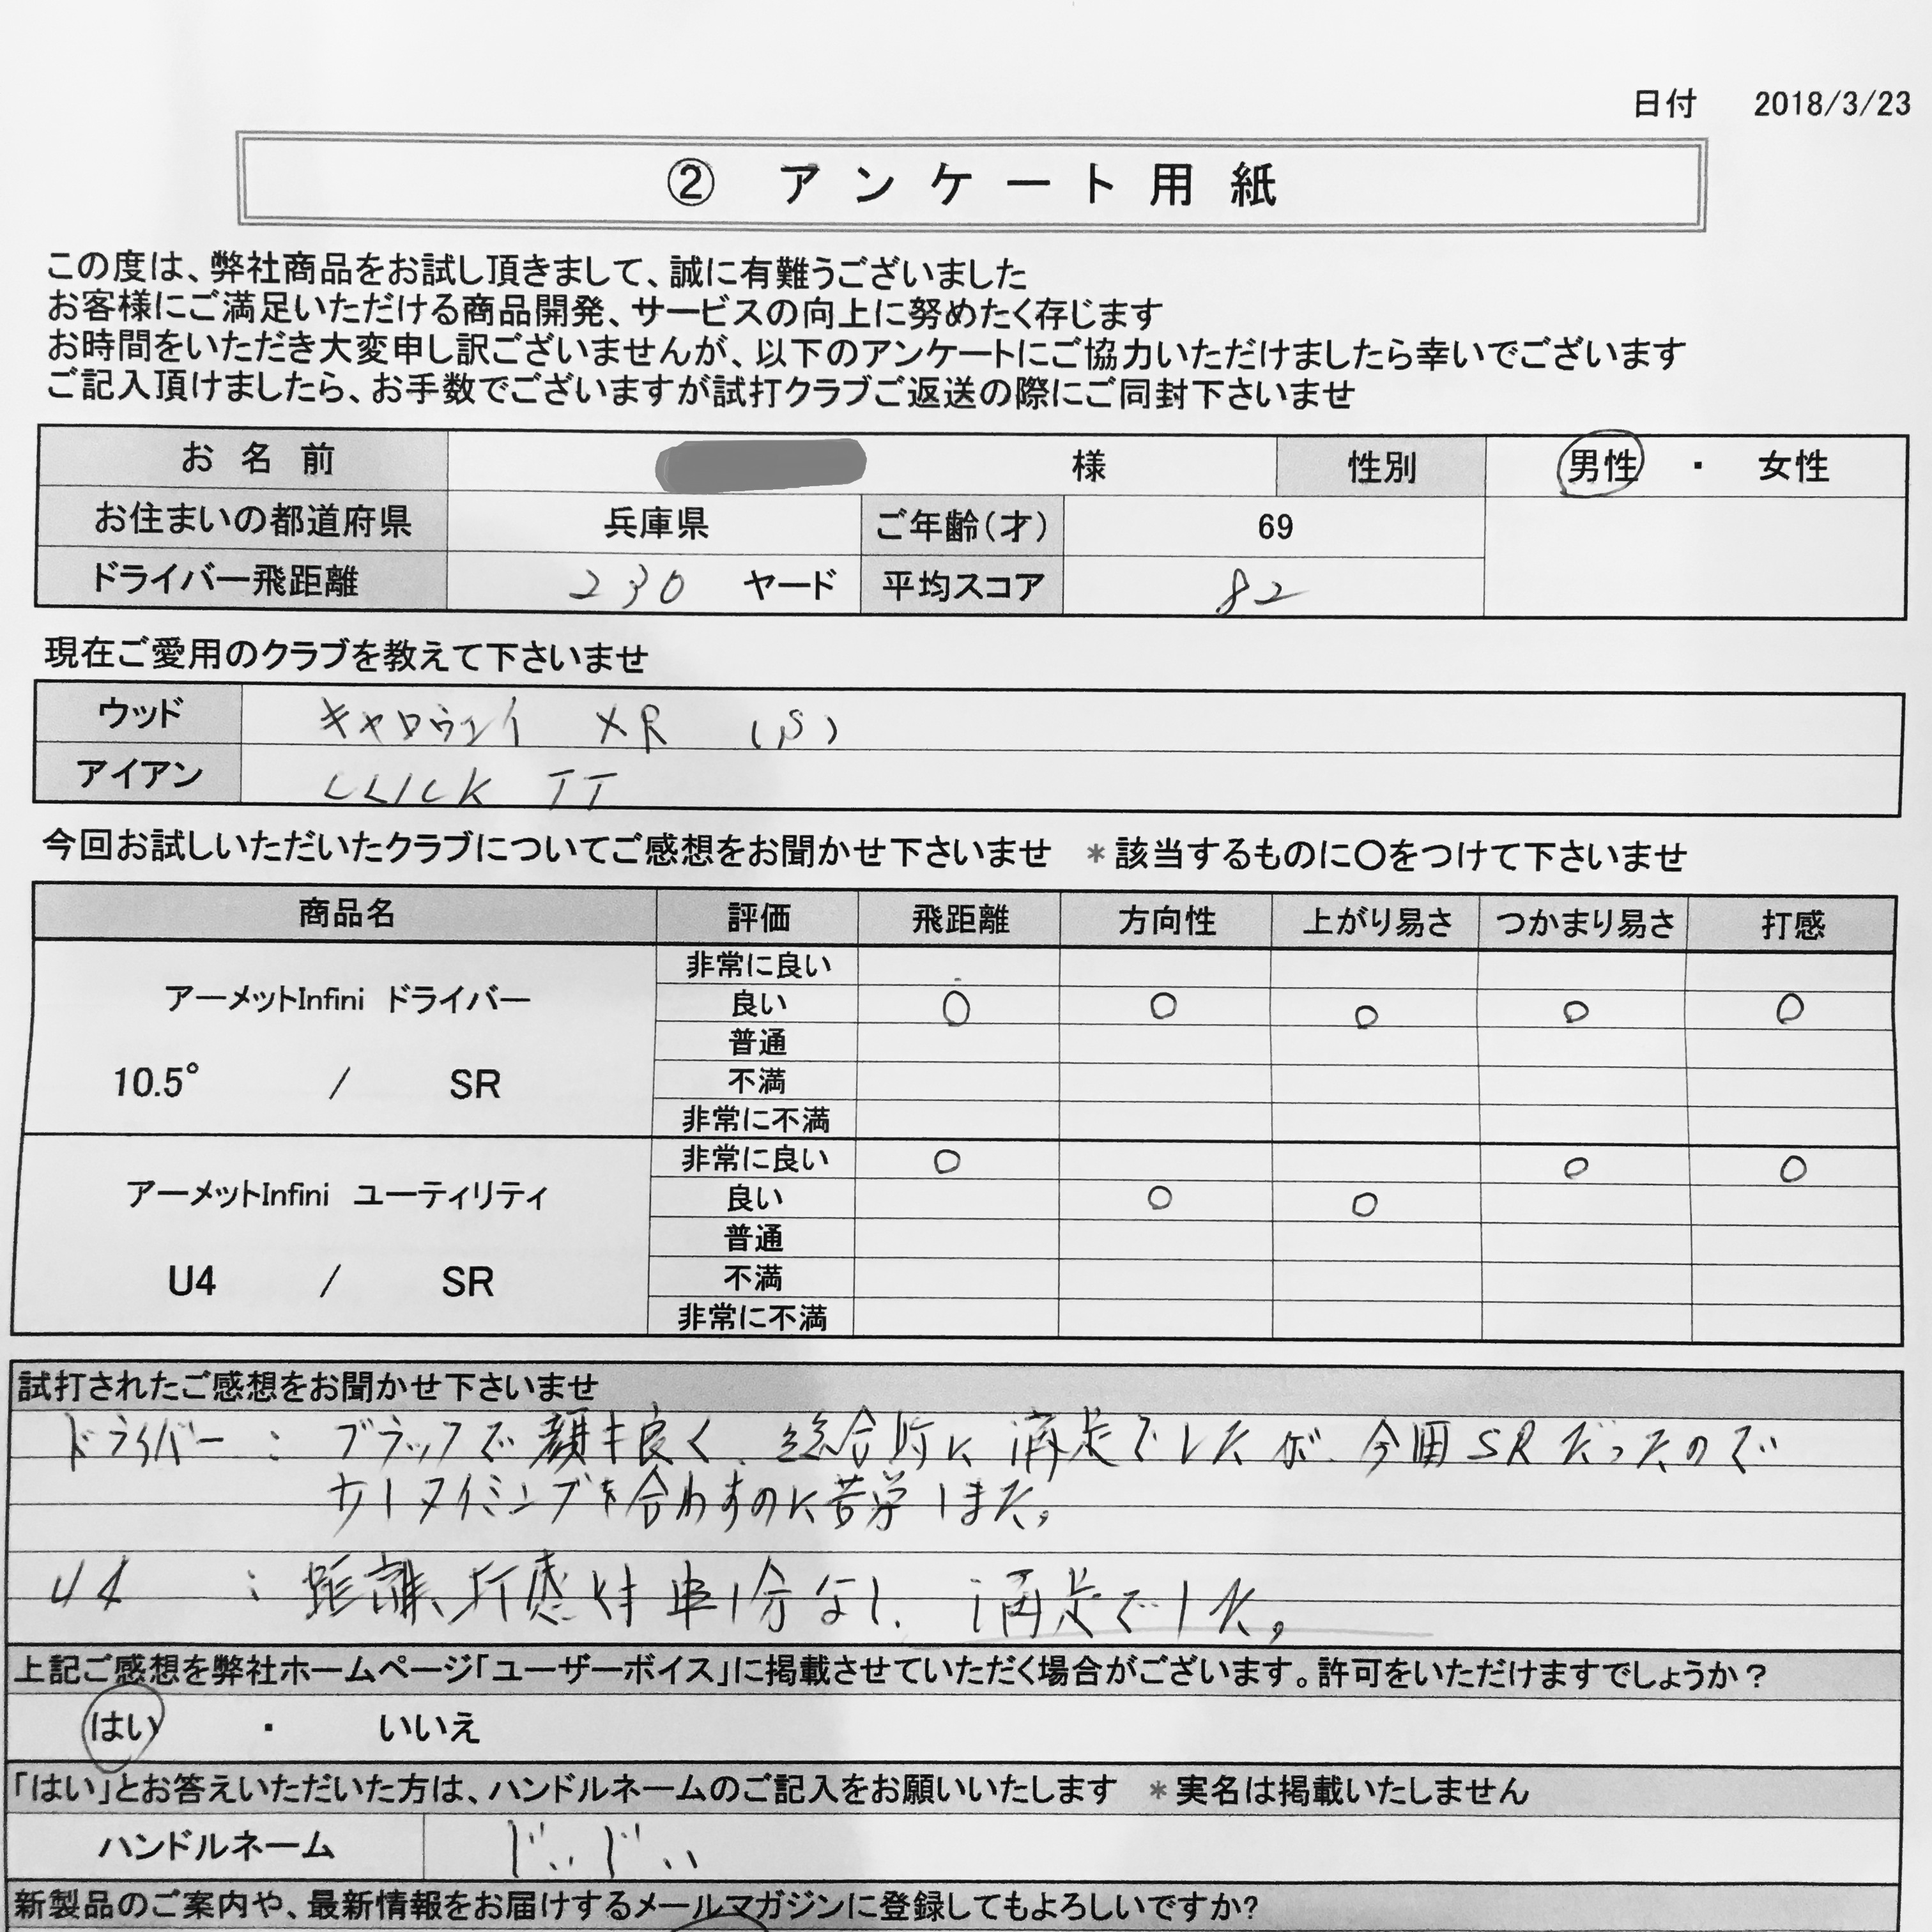 日付 2018/3/23
② アンケート用紙
この度は、弊社商品をお試し頂きまして、誠に有難うございました
お客様にご満足いただける商品開発、サービスの向上に努めたく存じます
お時間をいただき大変申し訳ございませんが、以下のアンケートにご協力いただけましたら幸いでございます
ご記入頂けましたら、お手数でございますが試打クラブご返送の際にご同封下さいませ
お名前 様 性別 男性 ・ 女性
お住まいの都道府県 兵庫県 ご年齢(才) 69
ドライバー飛距離 230 ヤード 平均スコア 82
現在ご愛用のクラブを教えて下さいませ
ウッド キャロウェイ XR (S)
アイアン CLICK TT
今回お試しいただいたクラブについてご感想をお聞かせ下さいませ *該当するものに〇をつけて下さいませ
商品名 評価 飛距離 方向性 上がり易さ つかまり易さ 打感
アーメットInfini ドライバー
10.5° / SR
非常に良い
良い 〇 〇 〇 〇 〇
普通
不満
非常に不満
アーメットInfini ユーティリティ
U4 / SR
非常に良い 〇 〇 〇
良い 〇 〇
普通
不満
非常に不満
試打されたご感想をお聞かせ下さいませ
ドライバー : ブラックで顔も良く、総合的に満足でしたが、今回SRだったので
少しタイミングを合わすのに苦労しました。
U4 : 距離、打感とも申し分なし、満足でした。
上記ご感想を弊社ホームページ「ユーザーボイス」に掲載させていただく場合がございます。許可をいただけますでしょうか?
はい ・ いいえ
「はい」とお答えいただいた方は、ハンドルネームのご記入をお願いいたします *実名は掲載いたしません
ハンドルネーム じぃじぃ
新製品のご案内や、最新情報をお届けするメールマガジンに登録してもよろしいですか?